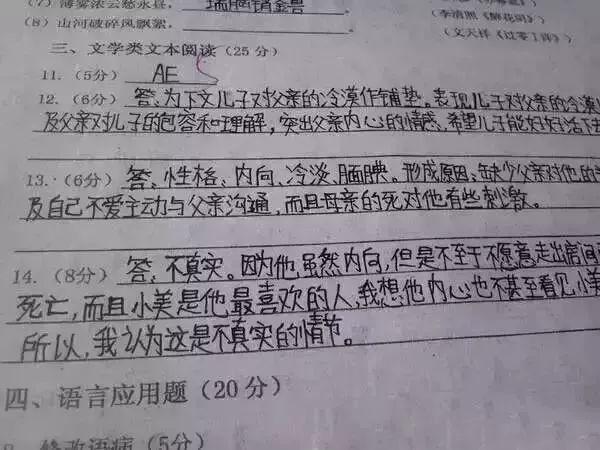 (7) 薄雾浓云愁永昼, 瑞脑销金兽
(8) 山河破碎风飘絮,
(李清照《醉花阴》)
(文天祥《过零丁洋》)
三、文学类文本阅读（25 分）
11.（5分） AE
12.（6分） 答：为下文儿子对父亲的冷漠作铺垫。表现儿子对父亲的冷漠
及父亲对儿子的包容和理解，突出父亲内心的情感、希望儿子能好好活下去
13.（6分） 答：性格：内向、冷淡、腼腆。形成原因：缺少父亲对他的
及自己不爱主动与父亲沟通，而且母亲的死对他有些刺激。
14.（8分） 答：不真实。因为他虽然内向，但是不至于不愿意走出房间
死亡，而且小美是他最喜欢的人，我想他内心也不甚至看见小美
所以，我认为这是不真实的情节。
四、语言应用题（20 分）
修改语病（5分）